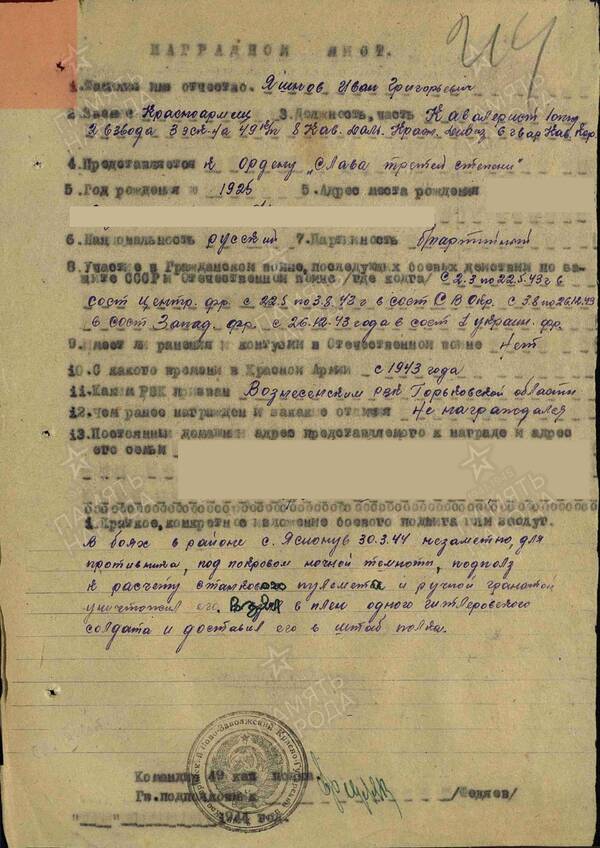 214
НАГРАДНОЙ ЛИСТ.
1. Фамилия имя отчество. Яшнов Иван Григорьевич
2. Звание Красноармеец 3. Должность, часть Кавалерист
2 взвода 3 эск-на 49 8 Кав. Даль. Красн. Дивиз 6 гвар Кав. Кор.
4. Представляется к ордену „Слава третей степени"
5. Год рождения 1925 5. Адрес места рождения
6. Национальность русский 7. Партийность
8. Участие в Гражданской войне, последующих боевых действий по за-
щите СССР и Отечественной войне /где когда/ С 2.3 по 22.5.43 г в
сост Центр. фр. с 22.5 по 3.8.43 г в сост С В Окр. с 3.8 по 26.12.43
в сост Запад. фр. с 26.12.43 года в сост 1 украин. фр.
9. Имеет ли ранения и контузии в Отечественной войне Нет
10. С какого времени в Красной Армии с 1943 года
11. Каким РВК призван Вознесенским рвк Горьковской области
12. Чем ранее награжден и за какие отличия Не награждался
13. Постоянный домашний адрес представляемого к награде и адрес
его семьи
1. Краткое, конкретное изложение боевого подвига или заслуг.
В боях в районе с. Ясионув 30.3.44 незаметно, для
противника, под покровом ночной темноты, подполз
к расчету станкового пулемета и ручной гранатой
уничтожил его. Взял в плен одного гитлеровского
солдата и доставил его в штаб полка.
Командир 49 кав полка
Гв. подполковник /Федяев/
1944 год.
ПАМЯТЬ НАРОДА